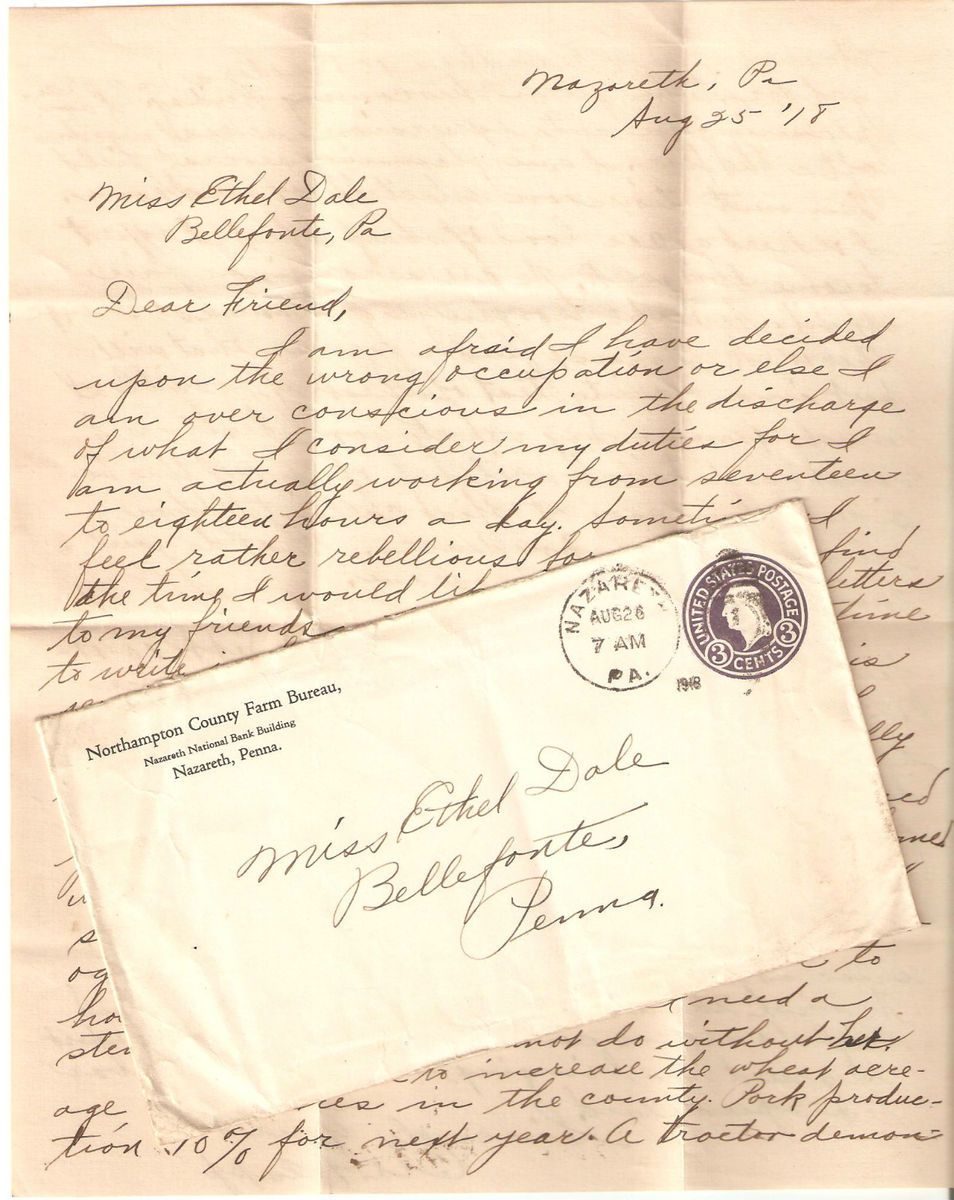 Nazareth, Pa
Aug 25 '18
Miss Ethel Dale
Bellefonte, Pa
Dear Friend,
I am afraid I have decided
upon the wrong occupation or else I
am over conscious in the discharge
of what I consider my duties for I
am actually working from seventeen
to eighteen hours a day. Someti I
feel rather rebellious for find
the time I would li letters
to my friends time
to write
is
lly
to
need a
not do without her.
to increase the wheat acre-
age in the county. Pork produc-
tion 10% for next year. A tractor demon-
NAZARETH
AUG 26
7 AM
PA.
1918
UNITED STATES POSTAGE
3 CENTS 3
Northampton County Farm Bureau,
Nazareth National Bank Building
Nazareth, Penna.
Miss Ethel Dale
Bellefonte,
Penna.